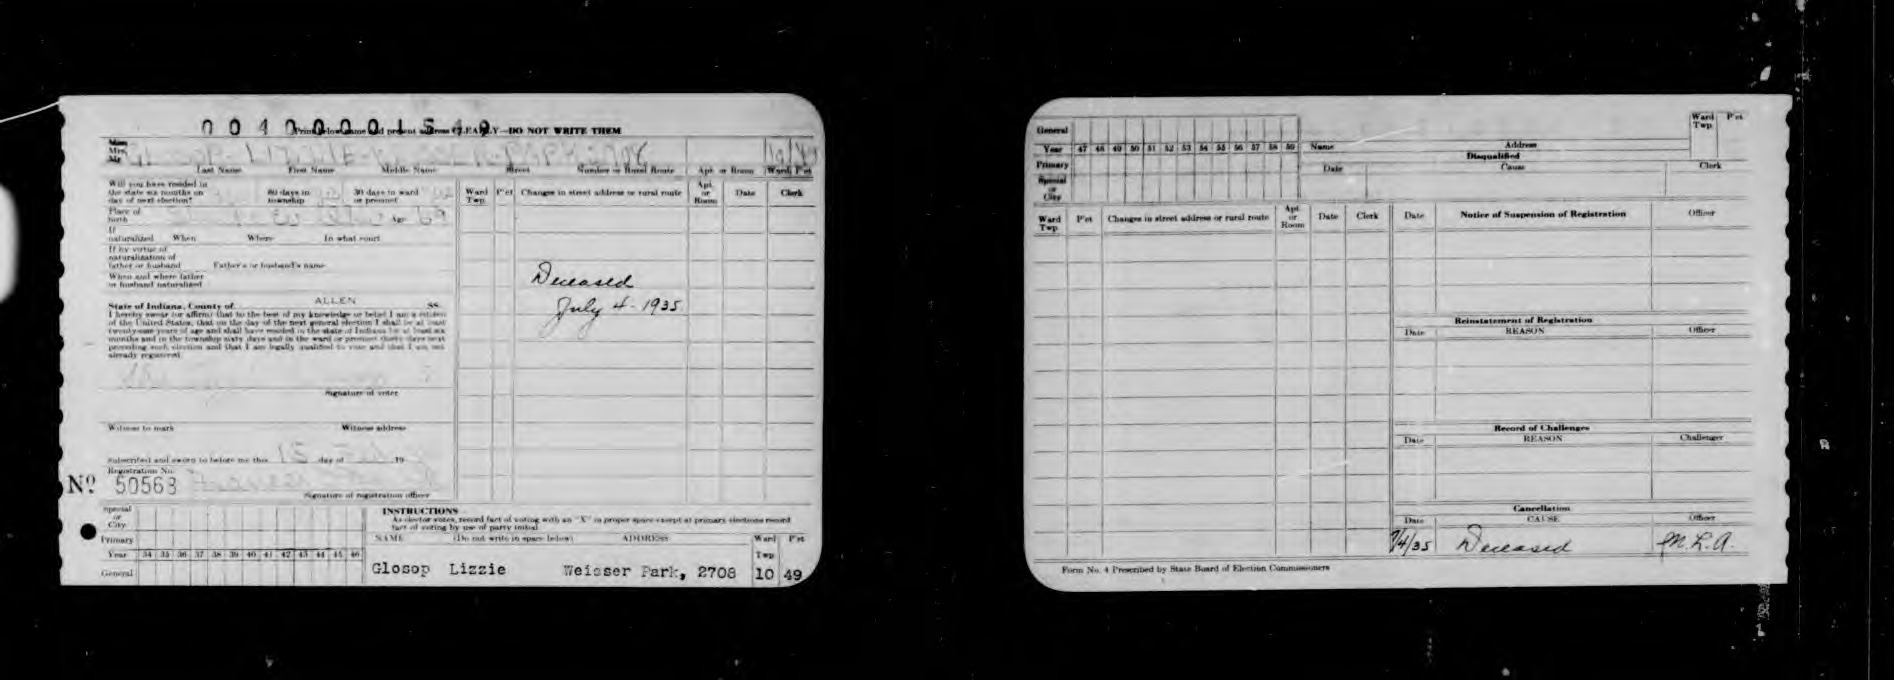 00400001549
Print below name and present address CLEARLY—DO NOT WRITE THEM
Miss
Mrs.
Mr.
GLOSOP LIZZIE WEISSER PARK 2708 10 49
Last Name First Name Middle Name Street Number or Rural Route Apt. or Room Ward P'ct
Will you have resided in
the state six months on
day of next election?
60 days in
township
30 days in ward
or precinct
Place of
birth
Age 69
If
naturalized When Where In what court
If by virtue of
naturalization of
father or husband Father's or husband's name
When and where father
or husband naturalized
State of Indiana, County of ALLEN SS.
I hereby swear (or affirm) that to the best of my knowledge or belief I am a citizen
of the United States, that on the day of the next general election I shall be at least
twenty-one years of age and shall have resided in the state of Indiana for at least six
months and in the township sixty days and in the ward or precinct thirty days next
preceding such election and that I am legally qualified to vote and that I am not
already registered.
Signature of voter
Witness to mark Witness address
Subscribed and sworn to before me this 15 day of 19
Registration No.
No. 50563
Signature of registration officer
Ward
Twp. P'ct Changes in street address or rural route Apt.
or
Room Date Clerk
Deceased
July 4-1935
Special
or
City
Primary
Year 34 35 36 37 38 39 40 41 42 43 44 45 46
General
INSTRUCTIONS
As elector votes, record fact of voting with an "X" in proper space except at primary elections record
fact of voting by use of party initial.
NAME (Do not write in space below) ADDRESS Ward
Twp P'ct
Glosop Lizzie Weisser Park, 2708 10 49
General
Year 47 48 49 50 51 52 53 54 55 56 57 58 59
Primary
Special
or
City
Name Address
Ward
Twp. P'ct
Disqualified
Date Cause Clerk
Ward
Twp. P'ct Changes in street address or rural route Apt.
or
Room Date Clerk
Date Notice of Suspension of Registration Officer
Reinstatement of Registration
Date REASON Officer
Record of Challenges
Date REASON Challenger
Cancellation
Date CAUSE Officer
7/4/35 Deceased M.L.A.
Form No. 4 Prescribed by State Board of Election Commissioners